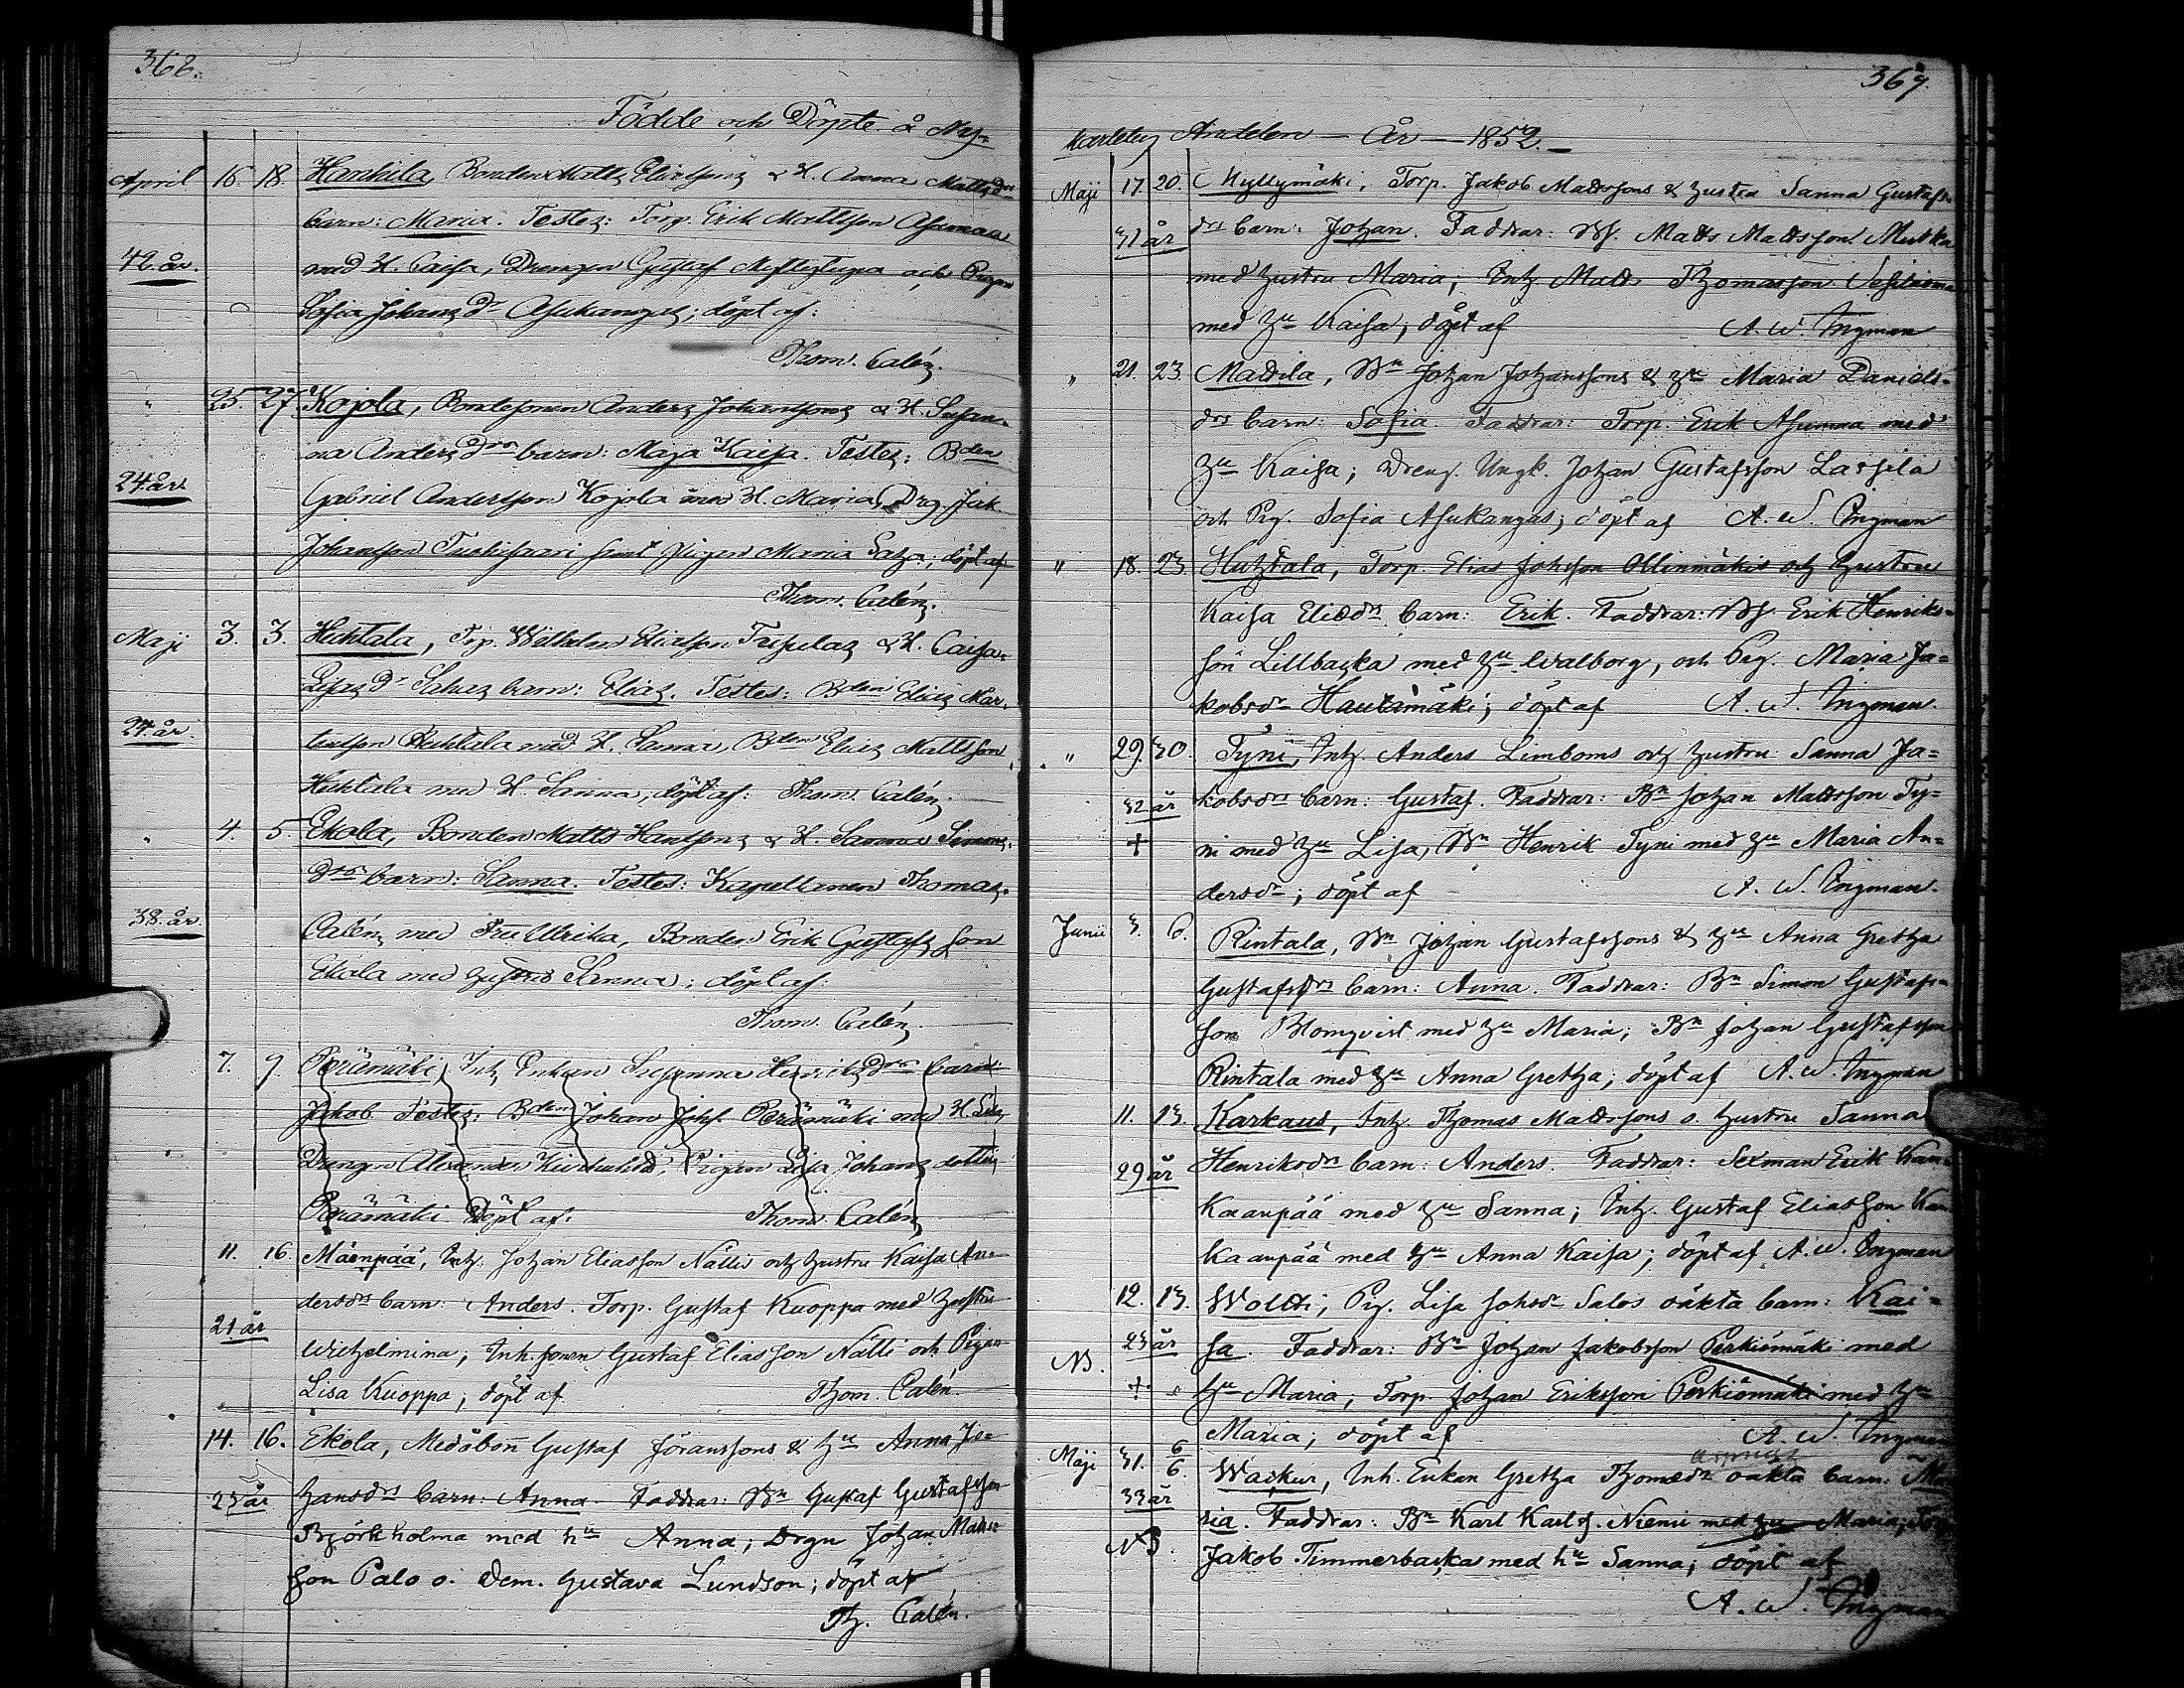 368.
Födde och Döpte å Ny-
April 16. 18. Hanhila, Bonden Matts Eliassons & H. Anna Mattsdrs
barn: Maria. Testes: Torp. Erik Mattsson Asumaa
42 år. med H. Caisa, Drengen Gustaf och Pigan
Sofia Johansdr Asukangas; döpt af:
Thom. Calén.
" 25. 27. Kojola, Bondesonen Anders Johanssons & H. Susan-
na Andersdrs barn: Maja Kaisa. Testes: Bden
24 år Gabriel Andersson Kojola med H. Maria, Drg. Jak.
Johansson samt Pigan Maria; döpt af
Thom. Calén.
Maji 3. 3. Huhtala, Trp. Wilhelm Eliasson & H. Caisa
barn: Elias. Testes: Bden Elias Mår-
24 år. tensson Huhtala med H. Sanna, Bden Elias Mattsson
Huhtala med H. Sanna, döpt af: Thom. Calén.
" 4. 5. Ekola, Bonden Matts Hanssons & H. Sanna Simons-
drs barn: Sanna. Testes: Kapellanen Thomas
38. år. Calén med Fru Ulrika, Bonden Erik Gustafsson
Ekola med hustru Sanna; döpt af:
Thom. Calén.
7. 9. Perämäki, Inh. Enkan Susanna Henriksdrs barn
Jakob. Testes: Bden Johan Johs. Perämäki med H. Lisa,
Drengen Alexander, Pigan Lisa Johansdotter
Perämäki. Döpt af: Thom. Calén
11. 16. Mäenpää, Inh. Johan Eliasson Nälli och hustru Kaisa An-
dersdrs barn: Anders. Torp. Gustaf Kuoppa med hustru
21 år Wilhelmina; Inh.sonen Gustaf Eliasson Nälli och Pigan
Lisa Kuoppa; döpt af Thom. Calén.
14. 16. Ekola, Medåbon Gustaf Göranssons & hu Anna Jo-
23 år hansdrs barn: Anna. Faddrar: Bn Gustaf Gustafsson
Björkholma med hu Anna; Drgn Johan Matts-
son Palo o. Dem. Gustava Lundson; döpt af
Th. Calén.
369.
karleby Andelen — År — 1852.
Maji 17. 20. Myllymäki, Torp. Jakob Mattssons & hustru Sanna Gustafs-
31 år drs barn: Johan. Faddrar: Bs. Matts Mattsson Mutka
med hustru Maria; Inh. Matts Thomasson
med hu Kaisa; döpt af A. W. Ingman
" 21. 23. Mattila, Bn Johan Johanssons & hu Maria Daniels-
drs barn: Sofia. Faddrar: Torp. Erik Asumaa med
hu Kaisa; Dreng. Ungk. Johan Gustafsson Lassila
och Pig. Sofia Asukangas; döpt af A. W. Ingman
" 18. 23. Huhtala, Torp. Elias Johsson Ollinmäkis och hustru
Kaisa Eliædrs barn: Erik. Faddrar: Bs. Erik Henriks-
son Lillbacka med hu Walborg, och Pig. Maria Ja-
kobsdr Hautamäki; döpt af A. W. Ingman.
" 29. 30. Tyni, Inh. Anders Limboms och hustru Sanna Ja-
32 år kobsdrs barn: Gustaf. Faddrar: Bn Johan Mattsson Ty-
+ ni med hu Lisa, Bn Henrik Tyni med hu Maria An-
dersdr; döpt af A. W. Ingman.
Junii 3. 6. Rintala, Bn Johan Gustafssons & hu Anna Gretha
Gustafsdrs barn: Anna. Faddrar: Bn Simon Gustafs-
son Blomqvist med hu Maria; Bn Johan Gustafsson
Rintala med hu Anna Gretha; döpt af A. W. Ingman
11. 13. Karkaus, Inh. Thomas Mattssons o. hustru Sanna
29 år Henriksdrs barn: Anders. Faddrar: Sexman Erik Kan-
kaanpää med hu Sanna; Inh. Gustaf Eliasson Kan
kaanpää med hu Anna Kaisa; döpt af A. W. Ingman
12. 13. Woltti, Pig. Lisa Johsdr Salos oäkta barn: Kai-
23 år sa. Faddrar: Bn Johan Jakobsson Perkiömäki med
NB.
+ hu Maria; Torp. Johan Eriksson Perkiömäki med hu
Maria; döpt af A. W. Ingman
Maji 31. 6/6. Wackur, Inh. Enkan Gretha Thomædrs oäkta barn: Ma
33 år ria. Faddrar: Bn Karl Karls. Niemi med hu Maria; Torp
NB. Jakob Timmerbacka med hu Sanna; döpt af
A. W. Ingman